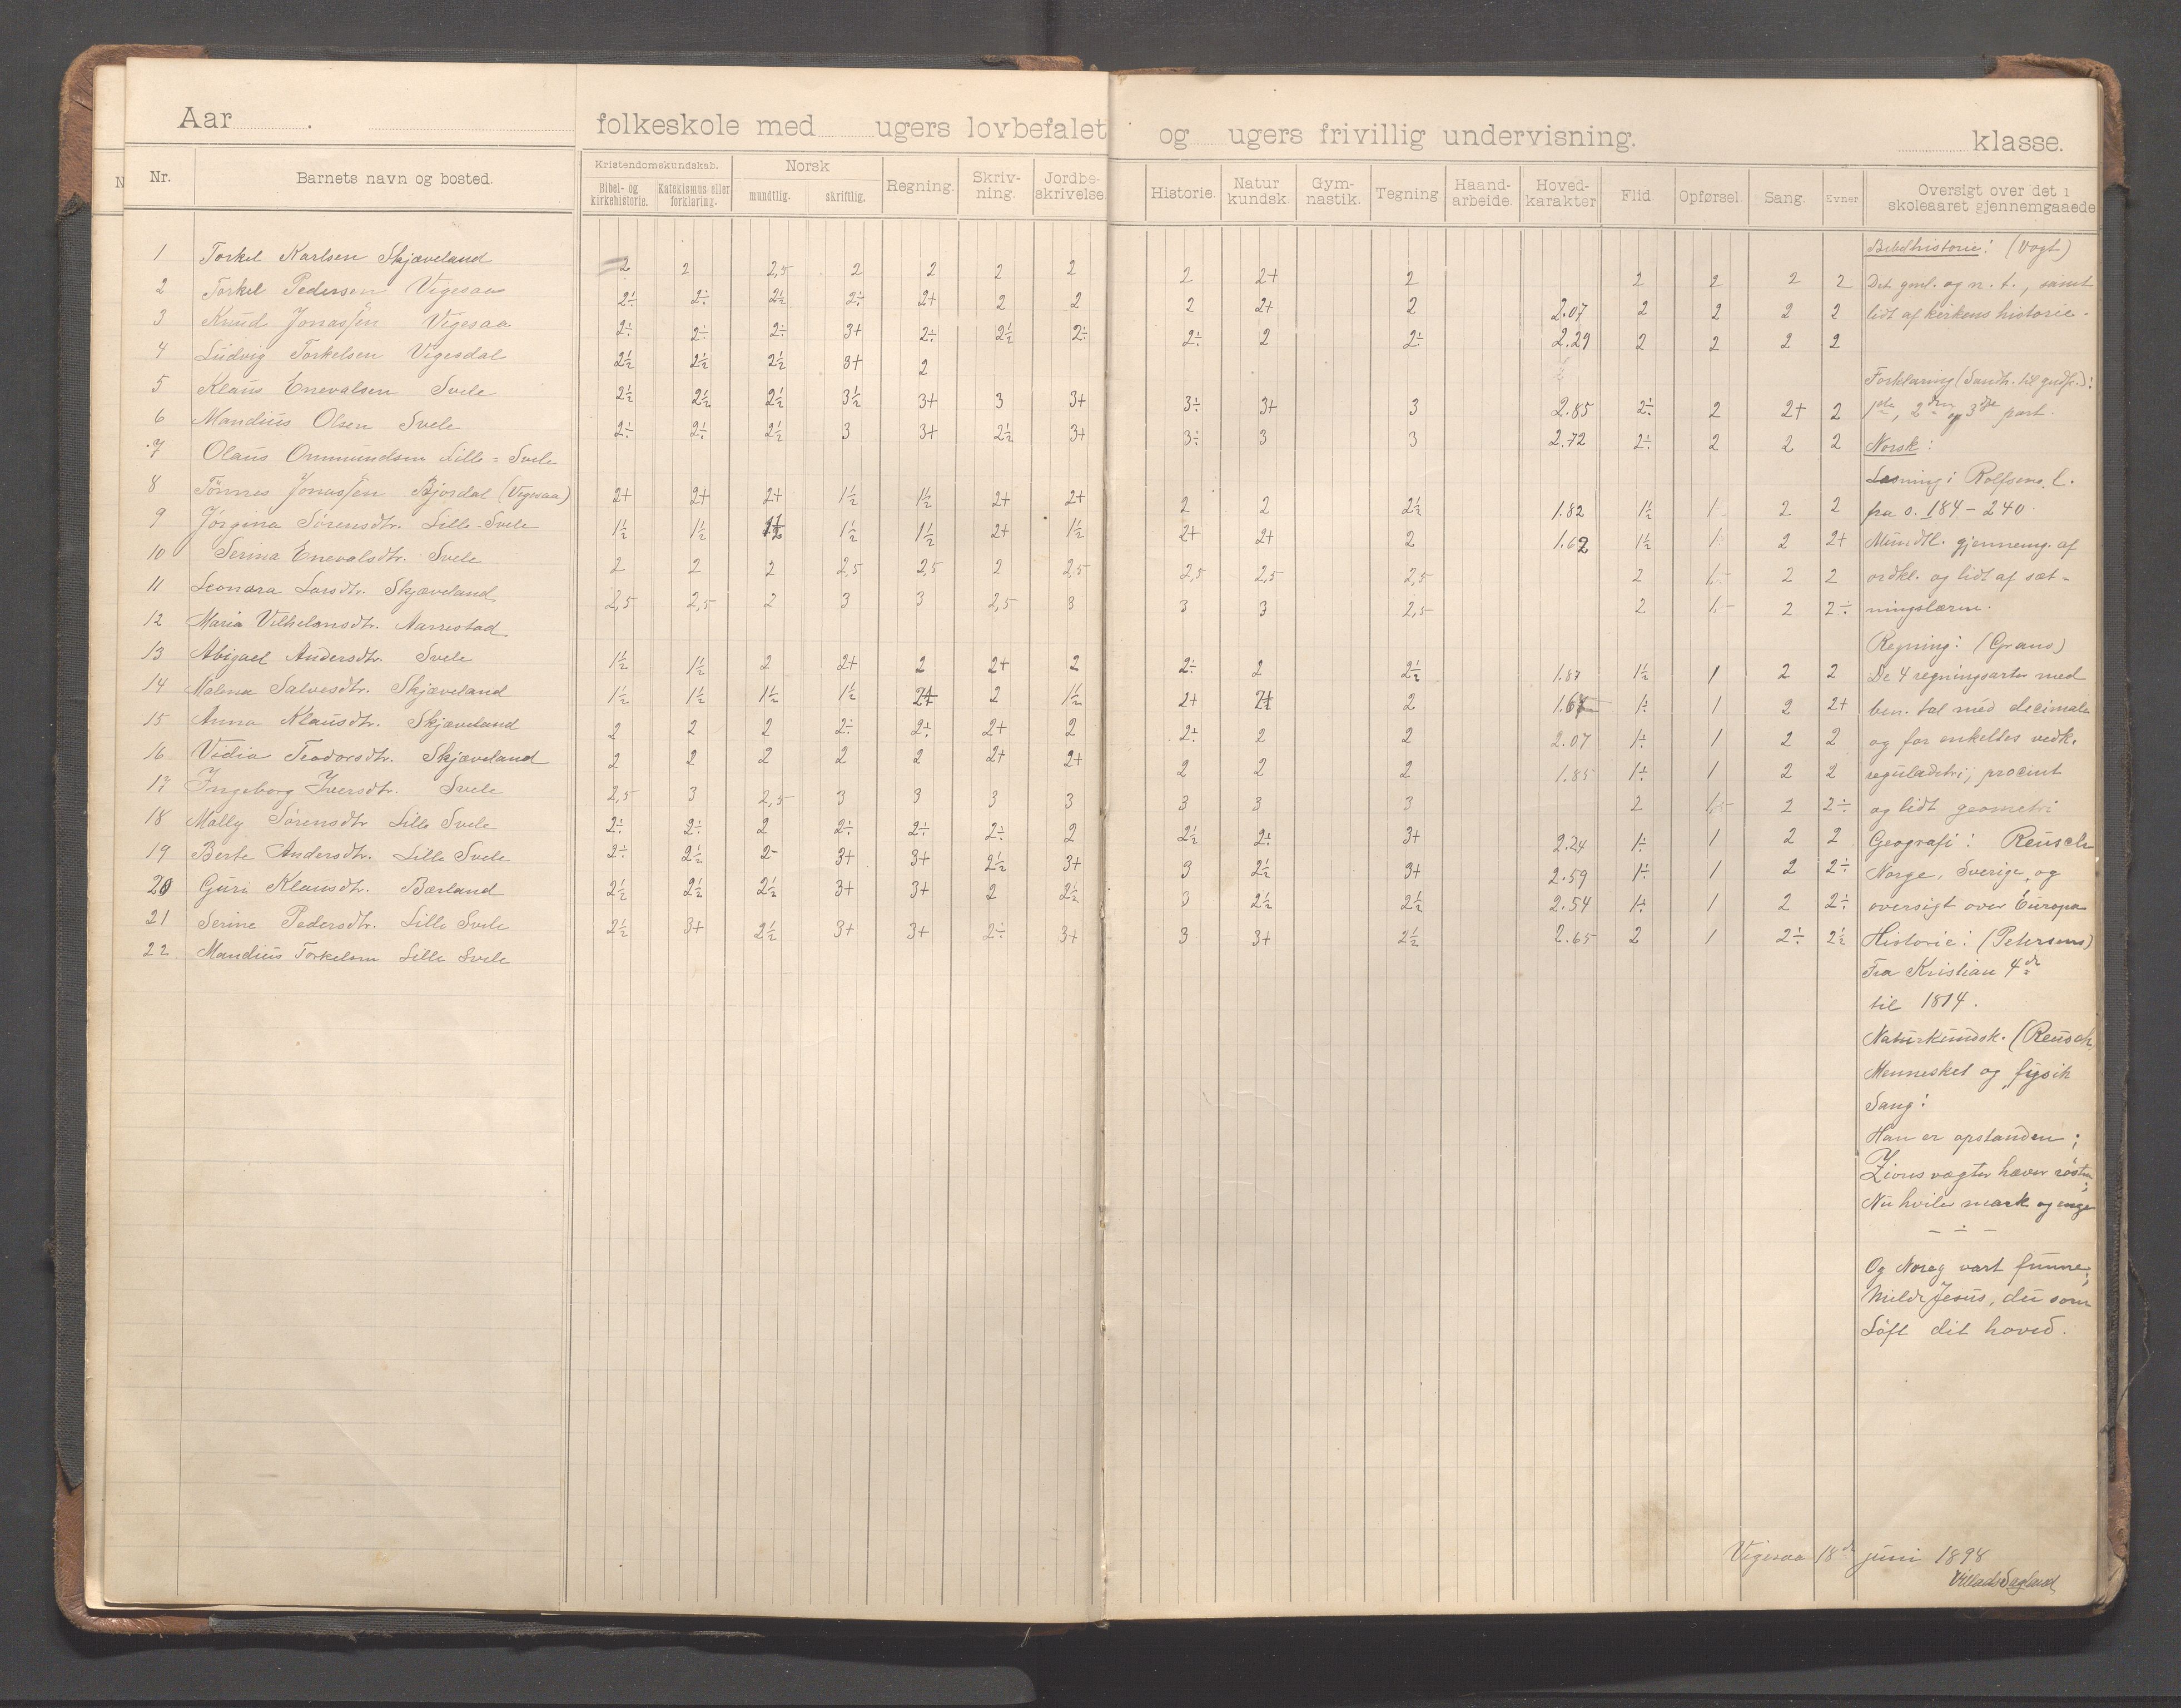 Aar . folkeskole med ugers lovbefalet og ugers frivillig undervisning. klasse.
Nr. Barnets navn og bosted. Kristendomskundskab. Bibel- og kirkehistorie. Katekismus eller forklaring. Norsk mundtlig. skriftlig. Regning. Skriv-ning. Jordbe-skrivelse. Historie. Natur kundsk. Gym-nastik. Tegning Haand-arbeide. Hoved-karakter Flid. Opførsel. Sang. Evner Oversigt over det i skoleaaret gjennemgaaede
1 Torkel Karlsen Skjæveland 2 2 2,5 2 2 2 2 2 2+ 2 2 2 2 2
2 Torkel Pedersen Vigesaa 2÷ 2÷ 2½ 2÷ 2+ 2 2 2 2+ 2 2.07 2 2 2 2
3 Knud Jonassen Vigesaa 2÷ 2÷ 2÷ 3+ 2÷ 2½ 2÷ 2÷ 2 2÷ 2.29 2 2 2 2
4 Ludvig Torkelsen Vigesdal 2½ 2½ 2½ 3+ 2
5 Klaus Enevalsen Svele 2½ 2½ 2½ 3½ 3+ 3 3+ 3÷ 3+ 3 2.85 2÷ 2 2+ 2
6 Mandius Olsen Svele 2÷ 2÷ 2½ 3 3+ 2½ 3+ 3÷ 3 3 2.72 2÷ 2 2 2
7 Olaus Ommundsen Lille=Svele
8 Tönnes Jonassen Bjordal (Vigesaa) 2+ 2+ 2+ 1½ 1½ 2+ 2+ 2 2 2½ 1.82 1½ 1 2 2
9 Jørgina Sørensdtr. Lille-Svele 1½ 1½ 1½ 1½ 1½ 2+ 1½ 2+ 2+ 2 1.62 1½ 1 2 2+
10 Serina Enevalsdtr. Svele 2 2 2 2,5 2,5 2 2,5 2,5 2,5 2,5 2 1,5 2 2
11 Leonara Larsdtr. Skjæveland 2,5 2,5 2 3 3 2,5 3 3 3 2,5 2 1,5 2 2÷
12 Maria Vilhelmsdtr. Aarrestad
13 Abigael Andersdtr. Svele 1½ 1½ 2 2+ 2 2+ 2 2÷ 2 2½ 1.87 1½ 1 2 2
14 Malena Salvesdtr. Skjæveland 1½ 1½ 1½ 1½ 2+ 2 1½ 2+ 2+ 2 1÷ 1 2 2+
15 Anna Klausdtr. Skjæveland 2 2 2 2÷ 2÷ 2+ 2 2÷ 2 2 2.07 1÷ 1 2 2
16 Vidia Teodorsdtr. Skjæveland 2 2 2 2 2 2+ 2+ 2 2 2 1.85 1÷ 1 2 2
17 Ingeborg Iversdtr. Svele 2,5 3 2,5 3 3 3 3 3 3 3 2 1,5 2 2÷
18 Mally Sørensdtr Lille Svele 2÷ 2÷ 2 2÷ 2÷ 2÷ 2 2½ 2÷ 3+ 2.24 1÷ 1 2 2
19 Berte Andersdtr. Lille Svele 2÷ 2½ 2- 3+ 3+ 2½ 3+ 3 2½ 3+ 2.59 1÷ 1 2 2÷
20 Guri Klausdtr. Bærland 2½ 2½ 2½ 3+ 3+ 2 2½ 3 2½ 2½ 2.54 1÷ 1 2 2÷
21 Serine Pedersdtr. Lille Svele 2½ 3+ 2½ 3+ 3+ 2÷ 3+ 3 3+ 2½ 2.65 2 1 2÷ 2½
22 Mandius Torkelsen Lille Svele
Bibelhistorie: (Vogt)
Det gml. og n. t., samt
lidt af kirkens historie.
Forklaring (Sandh. til gudfr.):
1ste, 2den og 3dje part.
Norsk:
Læsning i Rolfsens l.
fra s. 184-240.
Mundtl. gjennemg. af
ordkl. og lidt af sæt=
ningslæren.
Regning: (Grans)
De 4 regningsarter med
ben. tal med decimaler
og for enkeltes vedk.
reguladetri, procent
og lidt geometri
Geografi: Reusch
Norge, Sverige, og
oversigt over Europa
Historie: (Petersens)
Fra Kristian 4de
til 1814.
Naturkundsk. (Reusch
Mennesket og fysik
Sang:
Han er opstanden;
Zions vægter hæver røsten;
Nu hviler mark og enge
- ÷ -
Og Noreg vart funne;
Milde Jesus, du som
Løft dit hoved.
Vigesaa 18de juni 1898
Villads Sagland